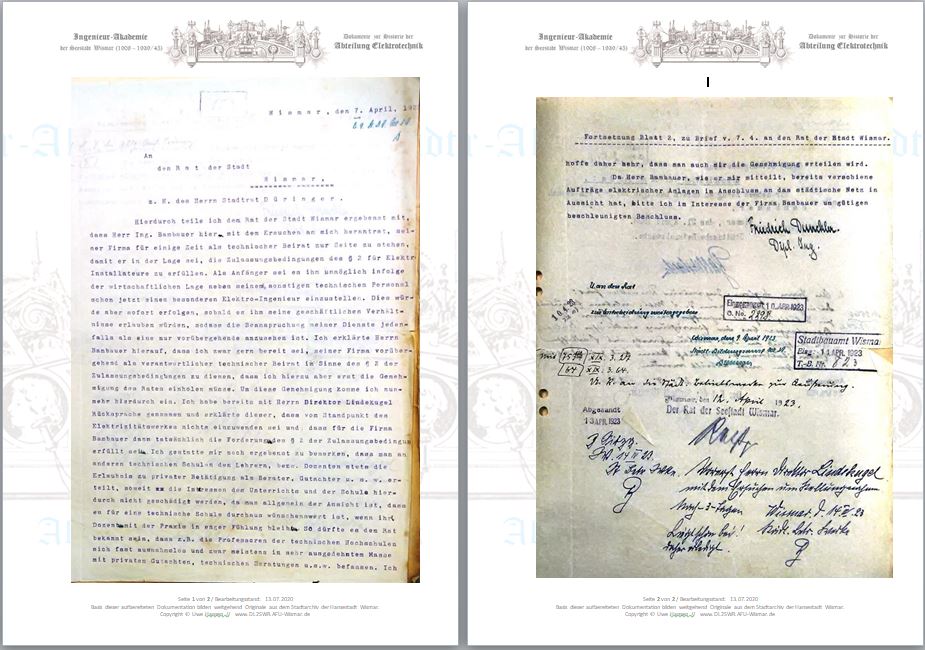 Ingenieur-Akademie
der Seestadt Wismar (1908 - 1939/45)
Dokumente zur Historie der
Abteilung Elektrotechnik
Wismar, den 7. April, 192
An
den Rat der Stadt
Wismar.
z. H. des Herrn Stadtrat Düringer.
Hierdurch teile ich dem Rat der Stadt Wismar ergebenst mit,
dass Herr Ing. Bambauer hier, mit dem Ersuchen an mich herantrat, sei-
ner Firma für einige Zeit als technischer Beirat zur Seite zu stehen,
damit er in der Lage sei, die Zulassungsbedingungen des § 2 für Elektro
Installateure zu erfüllen. Als Anfänger sei es ihm unmöglich infolge
der wirtschaftlichen Lage neben seinem sonstigen technischen Personal
schon jetzt einen besonderen Elektro-Ingenieur einzustellen. Dies wür-
de aber sofort erfolgen, sobald es ihm seine geschäftlichen Verhält-
nisse erlauben würden, sodass die Beanspruchung meiner Dienste jeden-
falls als eine nur vorübergehende anzusehen ist. Ich erklärte Herrn
Bambauer hierauf, dass ich zwar gern bereit sei, seiner Firma vorüber-
gehend als verantwortlicher technischer Beirat im Sinne des § 2 der
Zulassungsbedingungen zu dienen, dass ich hierzu aber erst die Geneh-
migung des Rates einholen müsse. Um diese Genehmigung komme ich nun-
mehr hierdurch ein. Ich habe bereits mit Herrn Direktor Lindekugel
Rücksprache genommen und erklärte dieser, dass vom Standpunkt des
Elektrizitätswerkes nichts einzuwenden sei und dass für die Firma
Bambauer dann tatsächlich die Forderung des § 2 der Zulassungsbedingun
erfüllt sei. Ich gestatte mir noch ergebenst zu bemerken, dass man an
anderen technischen Schulen des Lehrern, bezw. Dozenten stets die
Erlaubnis zu privater Betätigung als Berater, Gutachter u. s. w. er-
teilt, soweit die Interessen des Unterrichts und der Schule hier-
durch nicht geschädigt werden, da man allgemein der Ansicht ist, dass
es für eine technische Schule durchaus wünschenswert ist, wenn ihr
Dozent mit der Praxis in enger Fühlung bleibt. So dürfte es dem Rat
bekannt sein, dass z.B. die Professoren der technischen Hochschulen
sich fast ausnahmslos und zwar meistens in sehr ausgedehntem Masse
mit privaten Gutachten, technischen Beratungen u.s.w. befassen. Ich
Seite 1 von 2 / Bearbeitungsstand: 13.07.2020
Basis dieser aufbereiteten Dokumentation bilden weitgehend Originale aus dem Stadtarchiv der Hansestadt Wismar.
Copyright © Uwe www.DL2SWR.AFU-Wismar.de
Ingenieur-Akademie
der Seestadt Wismar (1908 - 1939/45)
Dokumente zur Historie der
Abteilung Elektrotechnik
Fortsetzung Blatt 2, zu Brief v. 7. 4. an den Rat der Stadt Wismar.
hoffe daher sehr, dass man auch mir die Genehmigung erteilen wird.
Da Herr Bambauer, wie er mir mitteilt, bereits verschiene
Aufträge elektrischer Anlagen im Anschluss an das städtische Netz in
Aussicht hat, bitte ich im Interesse der Firma Bambauer um gütigen
beschleunigten Beschluss.
Friedrich Dunckler
Dipl. Ing.
U. an den Rat
Eingegangen 10. APR 1923
Wismar, den 9 April 1923
Stadtbauamt Wismar
Eing.: 11 APR. 1923
Wismar, den 12. April 1923.
Der Rat der Seestadt Wismar.
Abgesandt
13 APR. 1923
Herrn Direktor Lindekugel
mit dem Ersuchen um
Nach 3 Tagen
Seite 2 von 2 / Bearbeitungsstand: 13.07.2020
Basis dieser aufbereiteten Dokumentation bilden weitgehend Originale aus dem Stadtarchiv der Hansestadt Wismar.
Copyright © Uwe www.DL2SWR.AFU-Wismar.de